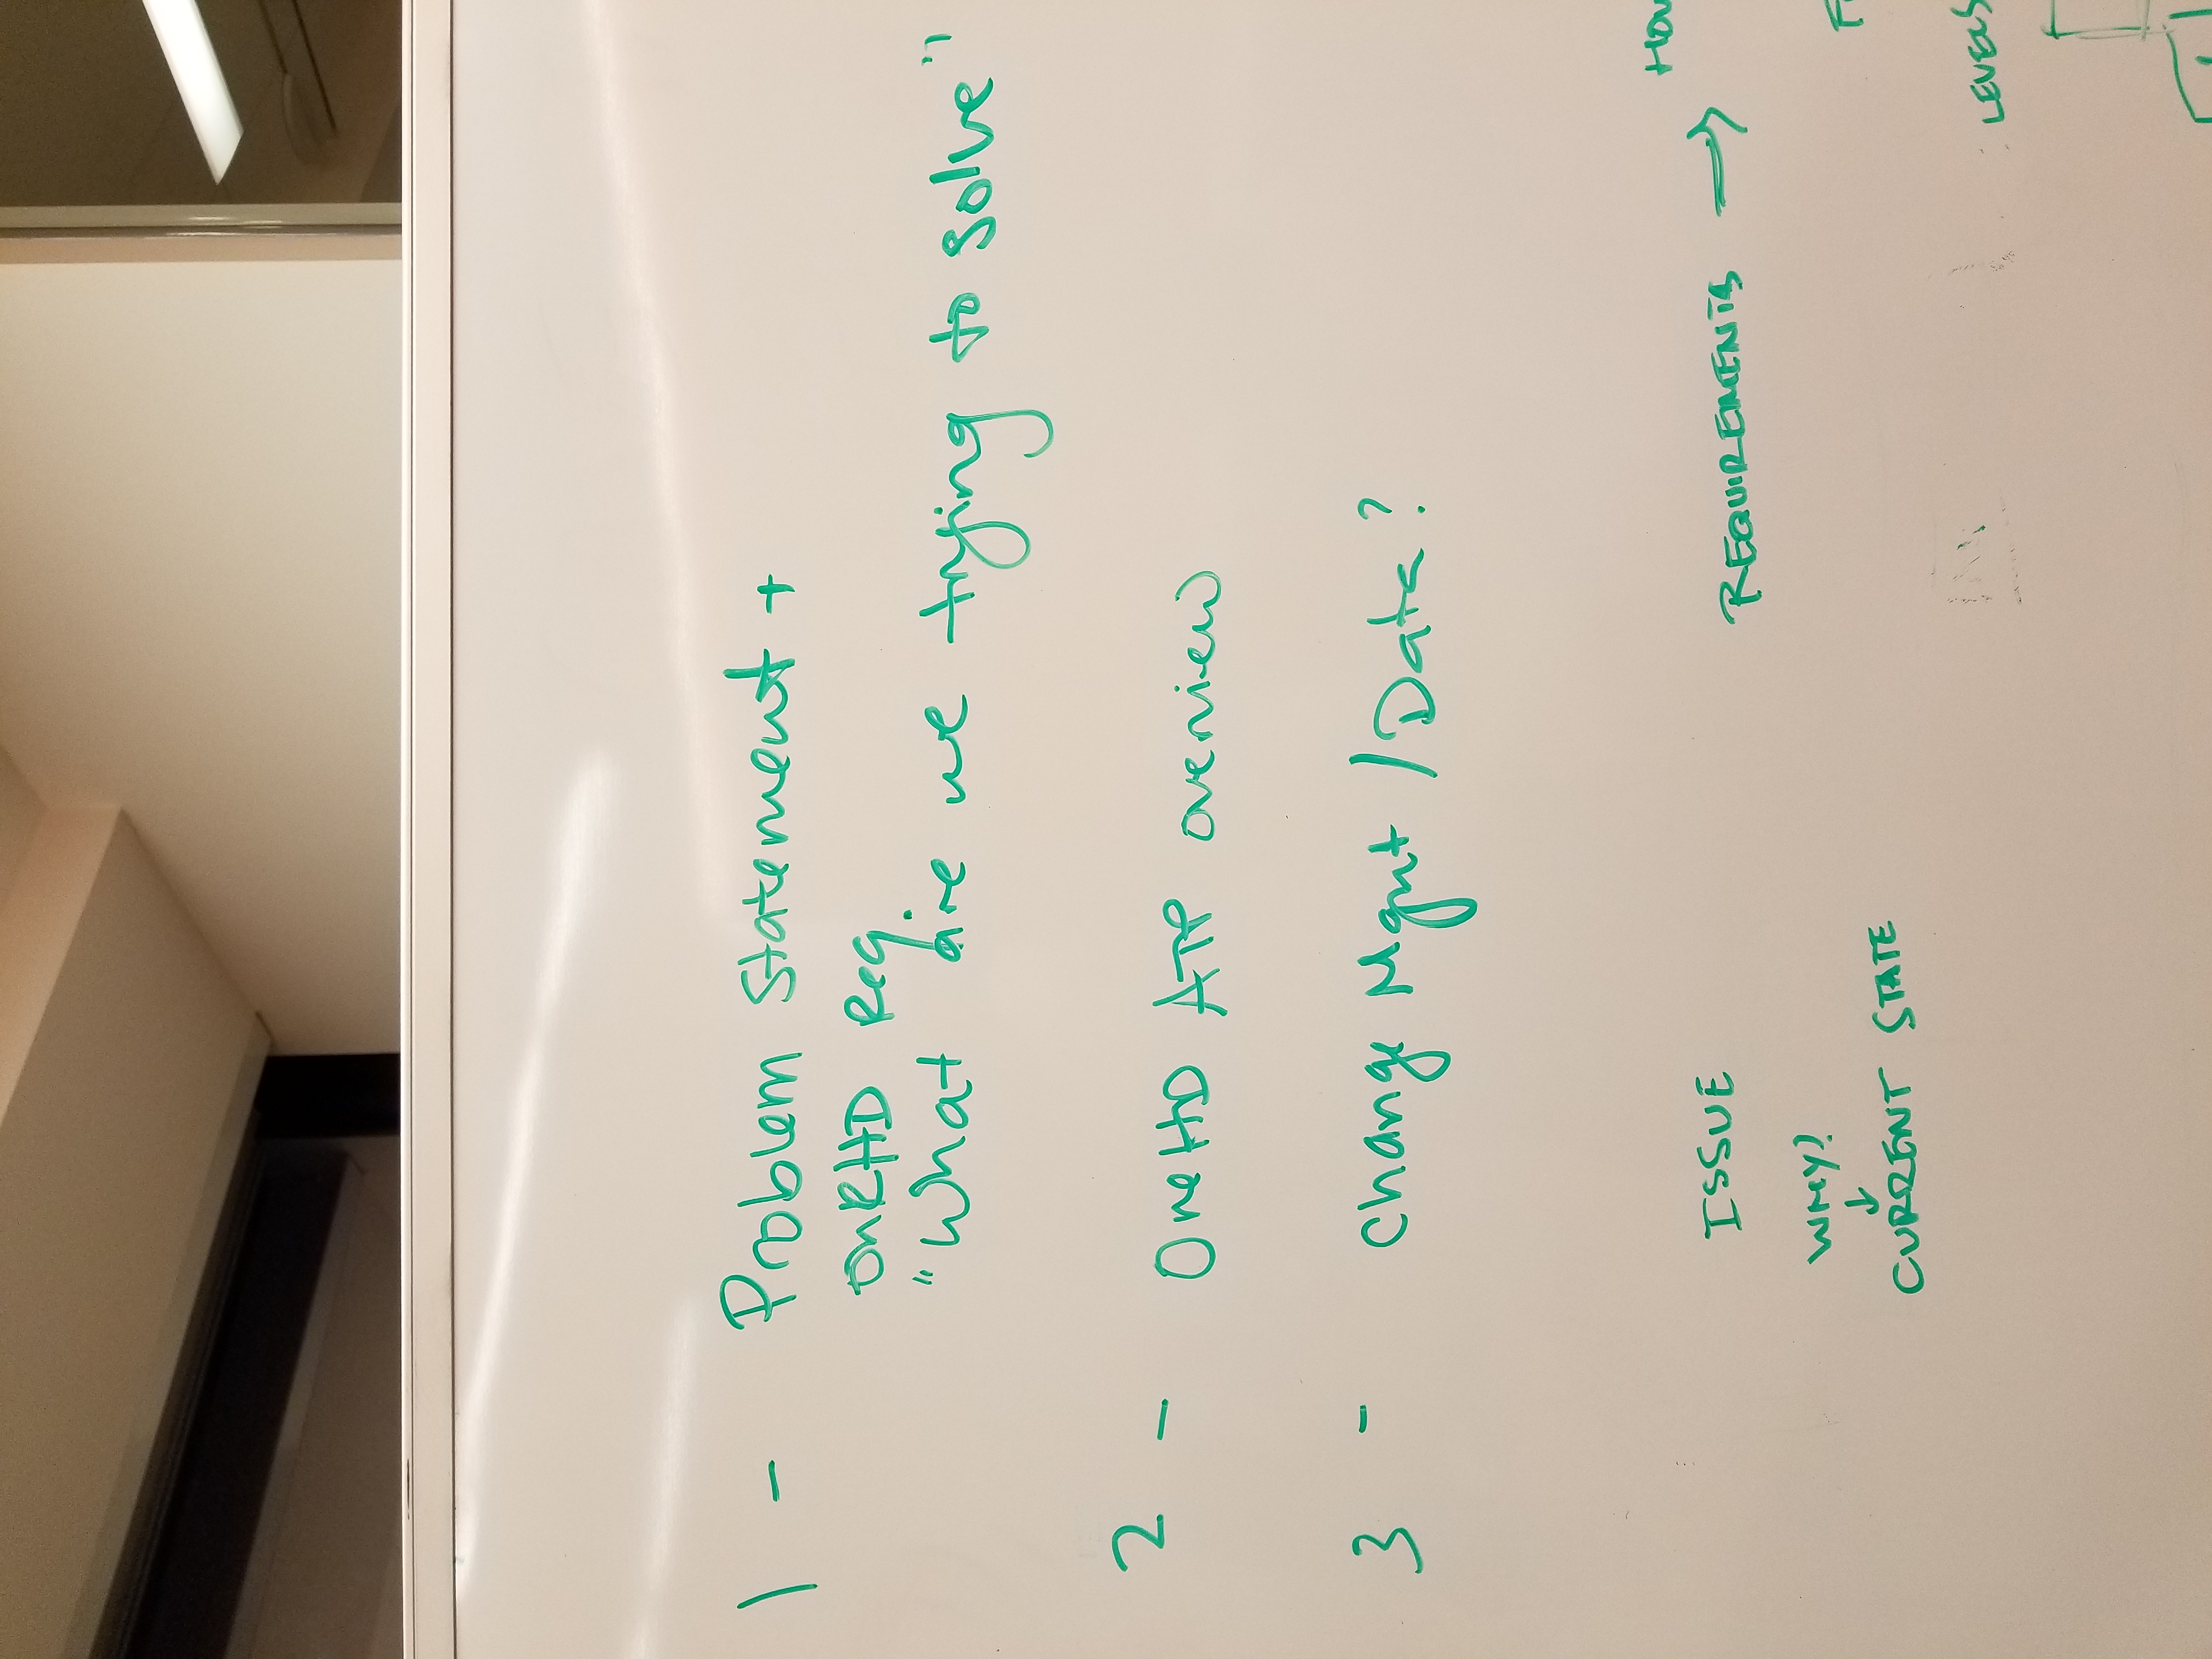 1 - Problem Statement +
OneHD Req.
"What are we trying to solve"
2 - OneHD ATP overview
3 - Change Mgmt / Date?
ISSUE REQUIREMENTS → HOW
WHY?
↓
CURRENT STATE
LEVELS